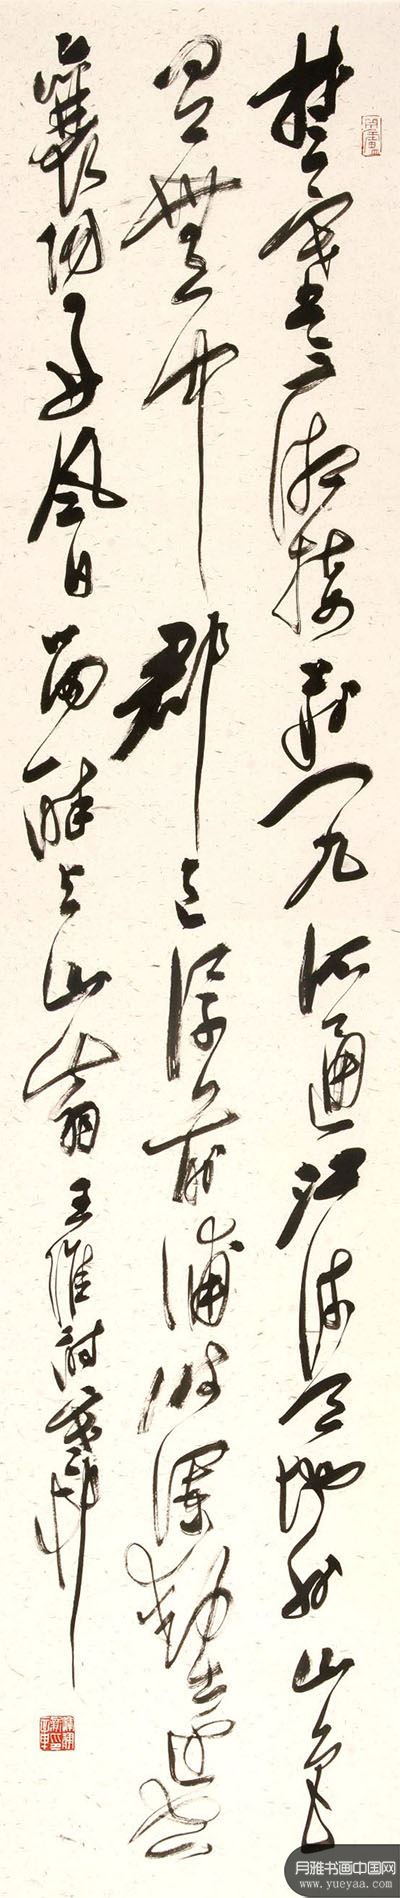 楚塞三湘接荆门九派通江流天地外山色
有無中郡邑浮前浦波澜動遠空
襄陽好風日留醉与山翁王維詩
月雅书画中国网
www.yueyaa.com